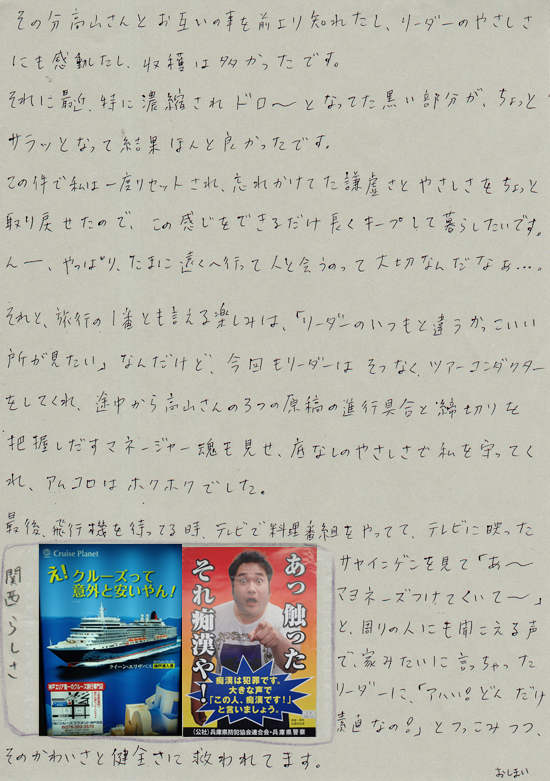 その分高山さんとお互いの事を前より知れたし、リーダーのやさしさ
にも感動したし、収穫は多かったです。
それに最近、特に濃縮されドロ〜となってた黒い部分が、ちょっと
サラッとなって結果ほんと良かったです。
この件で私は一度リセットされ、忘れかけてた謙虚さとやさしさをちょっと
取り戻せたので、この感じをできるだけ長くキープして暮らしたいです。
んー、やっぱり、たまに遠くへ行って人と会うのって大切なんだなぁ…。
それと、旅行の1番とも言える楽しみは、「リーダーのいつもと違うかっこいい
所が見たい」なんだけど、今回もリーダーはそつなく、ツアーコンダクター
をしてくれ、途中から高山さんの3つの原稿の進行具合と締切りを
把握しだすマネージャー魂も見せ、底なしのやさしさで私を守ってく
れ、アムコロはホクホクでした。
最後、飛行機を待ってる時、テレビで料理番組をやってて、テレビに映った
サヤインゲンを見て「あ〜
マヨネーズつけてくいて〜」
と、周りの人にも聞こえる声
で、家みたいに言っちゃった
リーダーに、「アハい!どんだけ
素直なの!」とつっこみつつ、
そのかわいさと健全さに救われてます。
おしまい
関西らしさ
Cruise Planet
え!クルーズって
意外と安いやん!
クイーン・エリザベス
あっ触った
それ痴漢や!
痴漢は犯罪です。
大きな声で
「この人、痴漢です!」
と言いましょう。
(公社)兵庫県防犯協会連合会・兵庫県警察